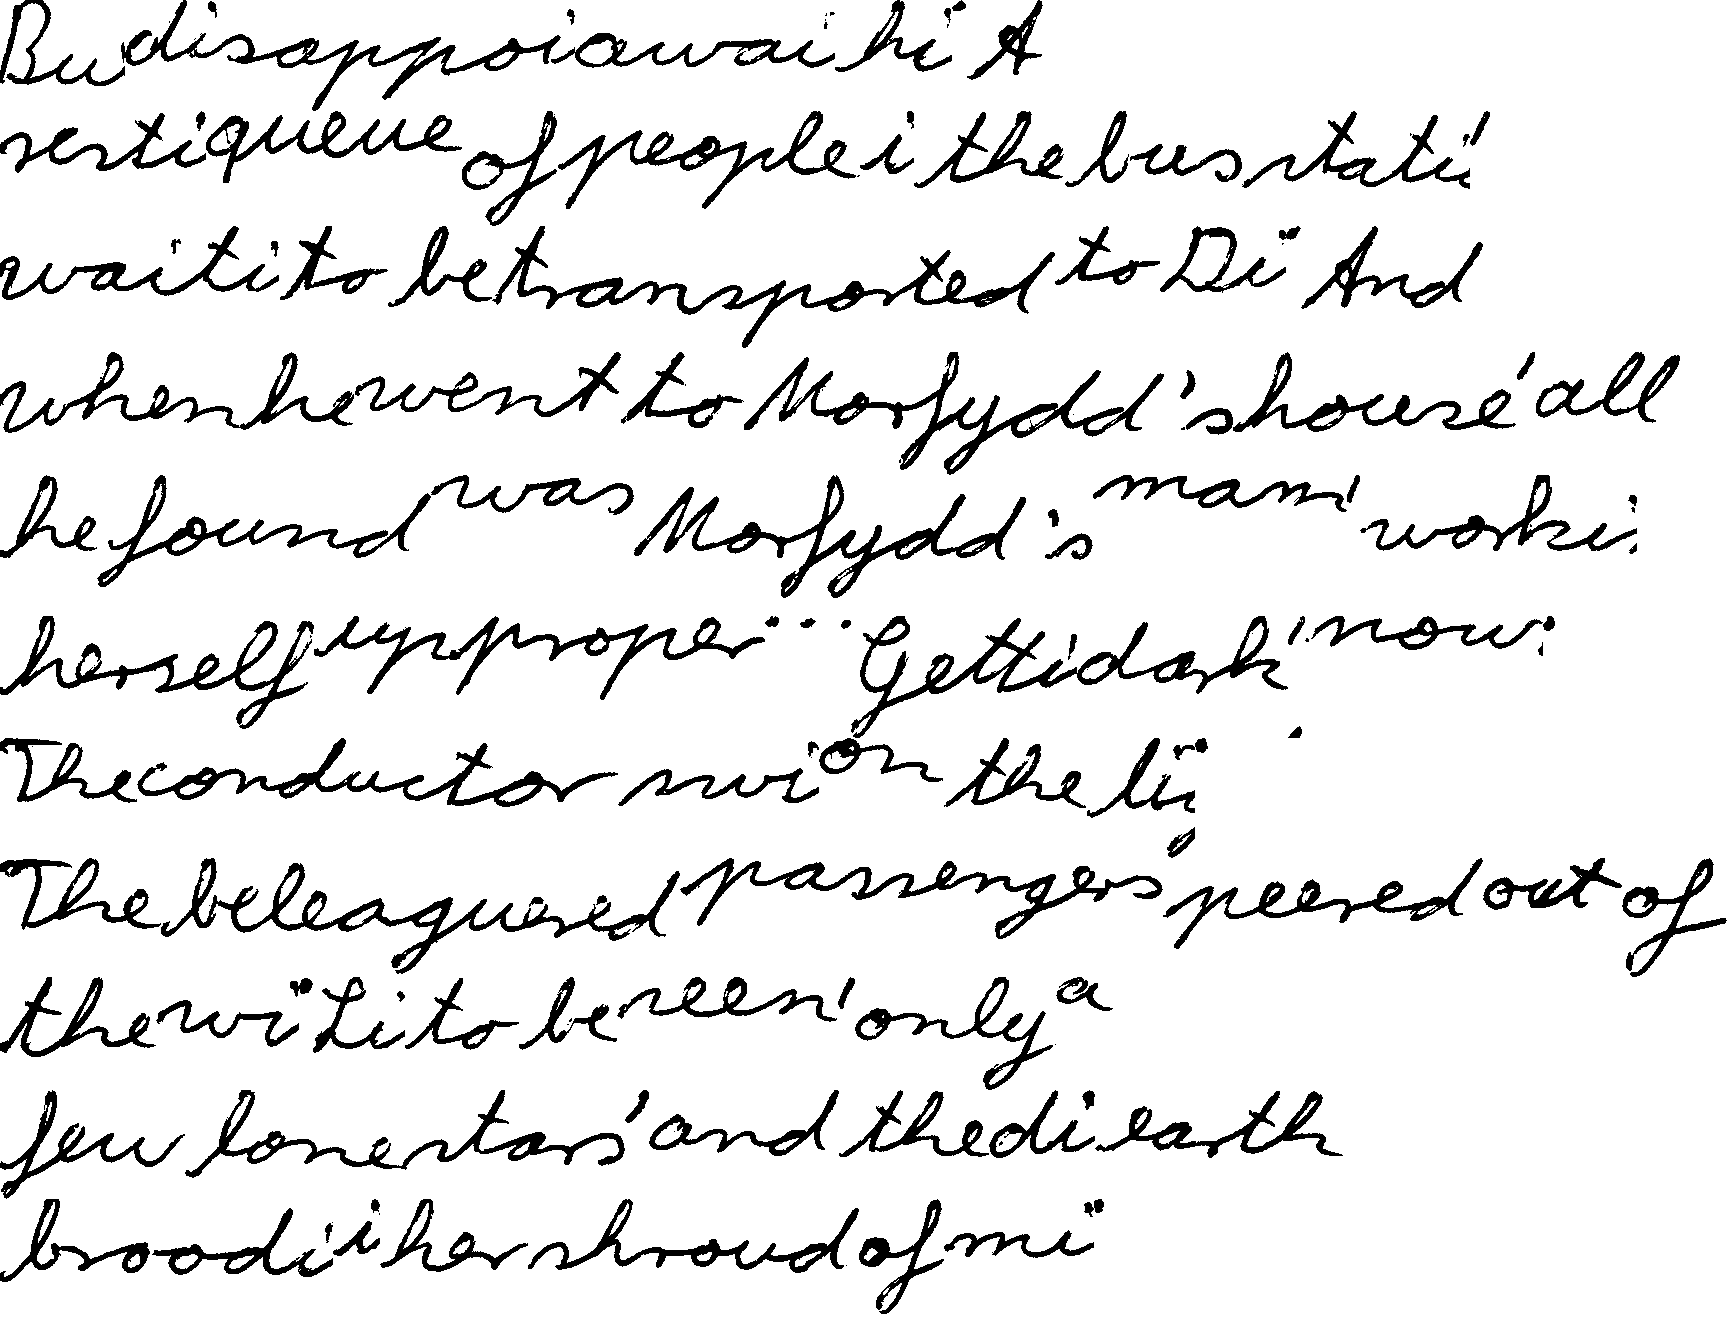 Bu disappoi awai hi. A
resti queue of people i the bus stati,
waiti to be transported to Di. And
when he went to Morfydd's house, all
he found was Morfydd's mam, worki
herself up proper... Getti dark, now.
The conductor swi on the li.
The beleaguered passengers peered out of
the wi. Li to be seen, only a
few lone stars, and the di earth
broodi i her shroud of mi.